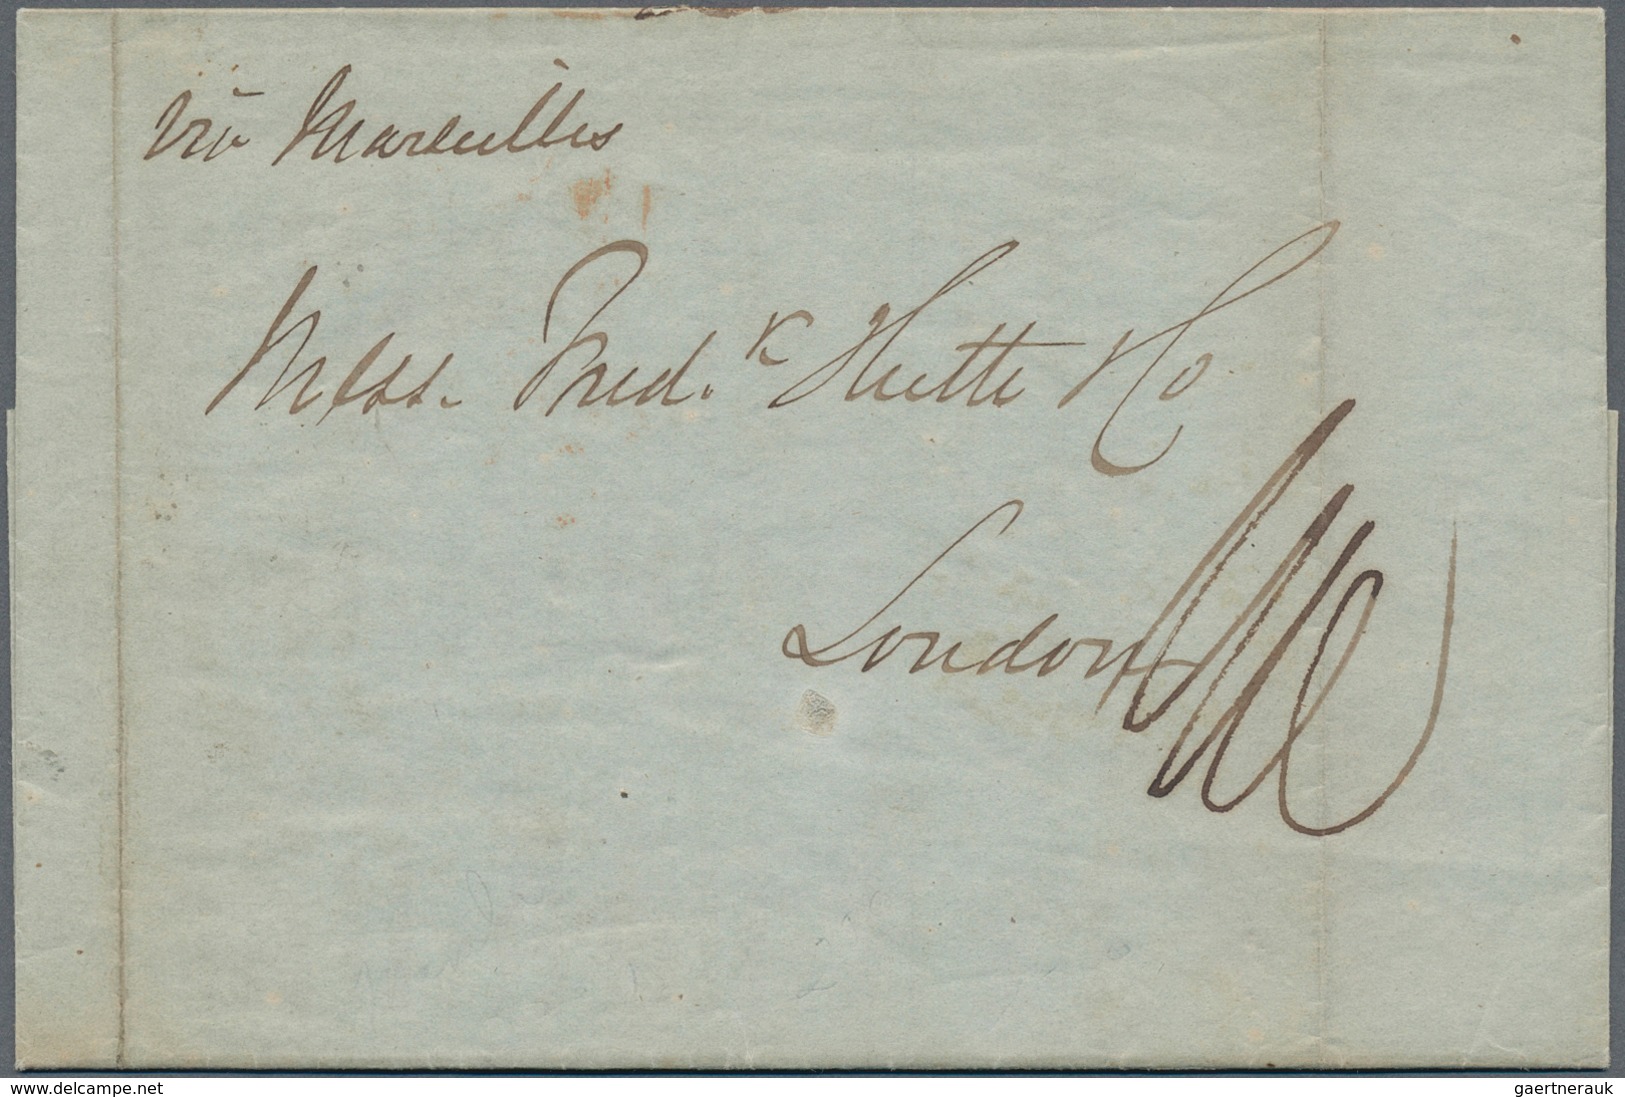 via Marseilles
Mess. Fred.k Huth & Co
London
www.delcampe.net
gaertnerauk